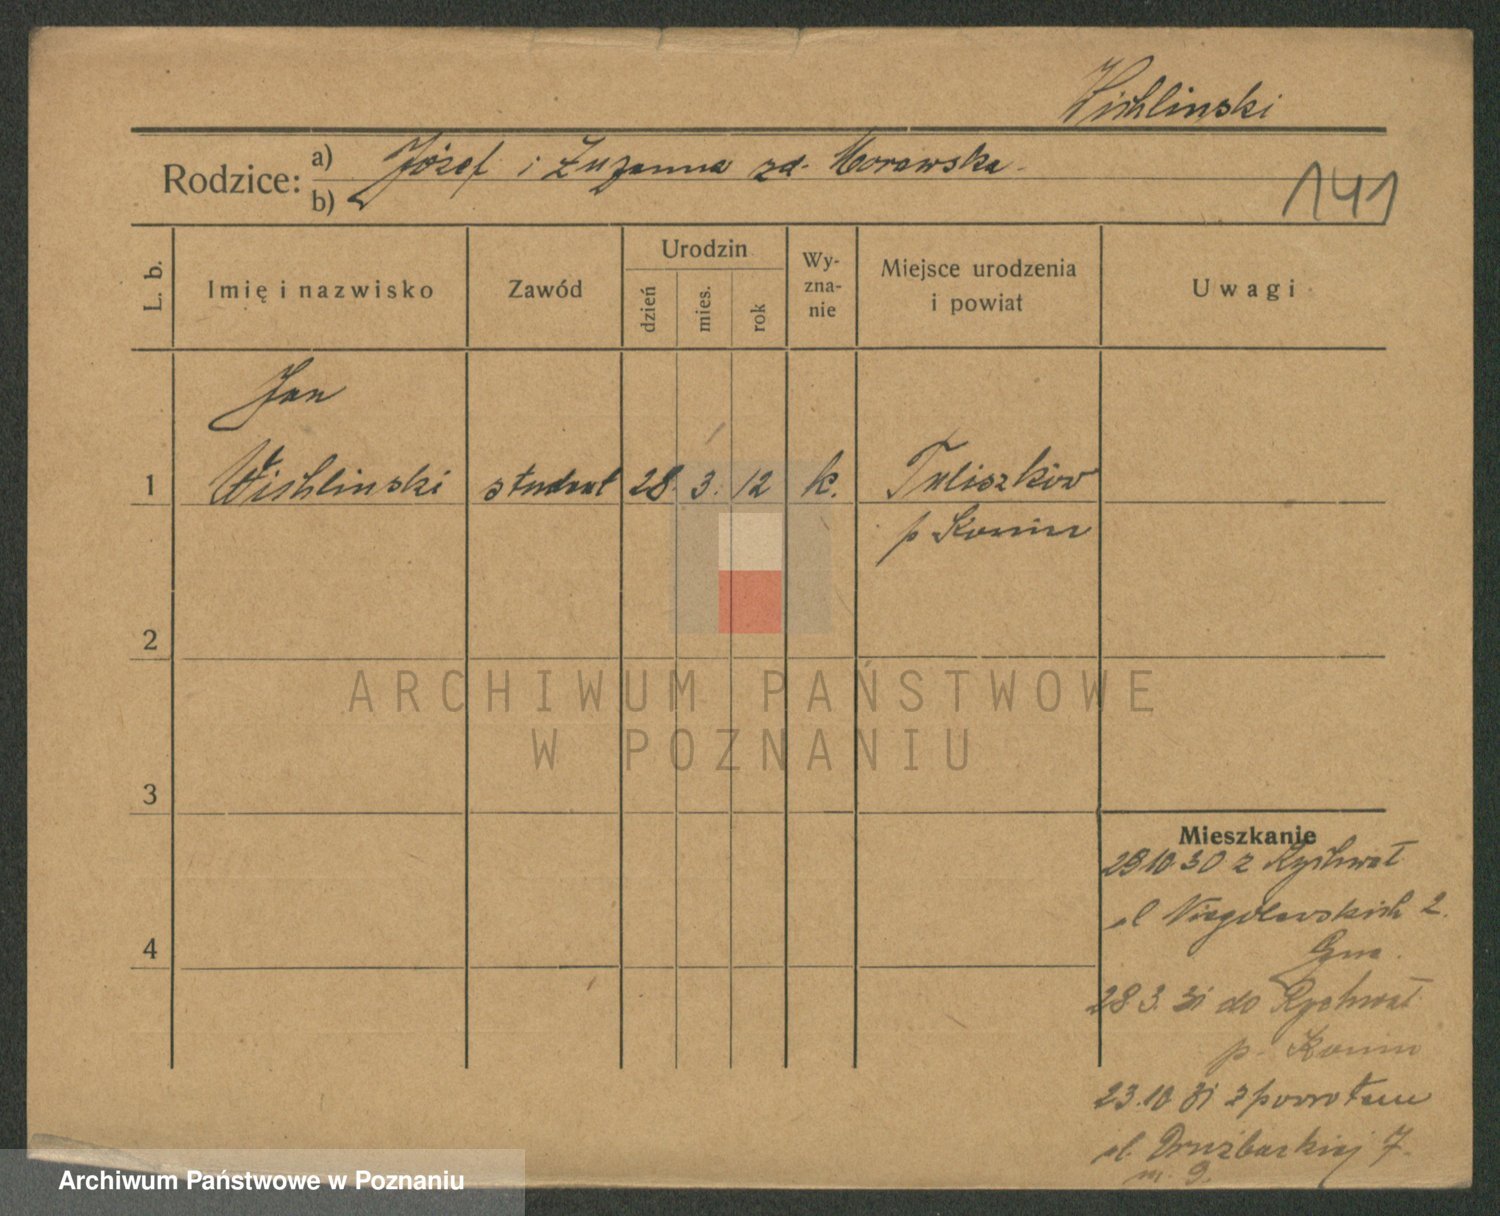 Wichlinski
Rodzice: a) Józef i Zuzanna zd. Morawska
b)
141
L. b.
Imię i nazwisko
Zawód
Urodzin
dzień
mies.
rok
Wy-
zna-
nie
Miejsce urodzenia
i powiat
Uwagi
Jan
1 Wichlinski student 28. 3. 12 k. Tuliszków
p Konin
2
ARCHIWUM PAŃSTWOWE
W POZNANIU
3
Mieszkanie
23 10 30 z Rychwał
ul Niegolewskich 2.
4
28 3. 31 do Rychwał
p. Konin
23.10 31 z powrotem
ul. Drużbackiej 7.
m. 9.
Archiwum Państwowe w Poznaniu